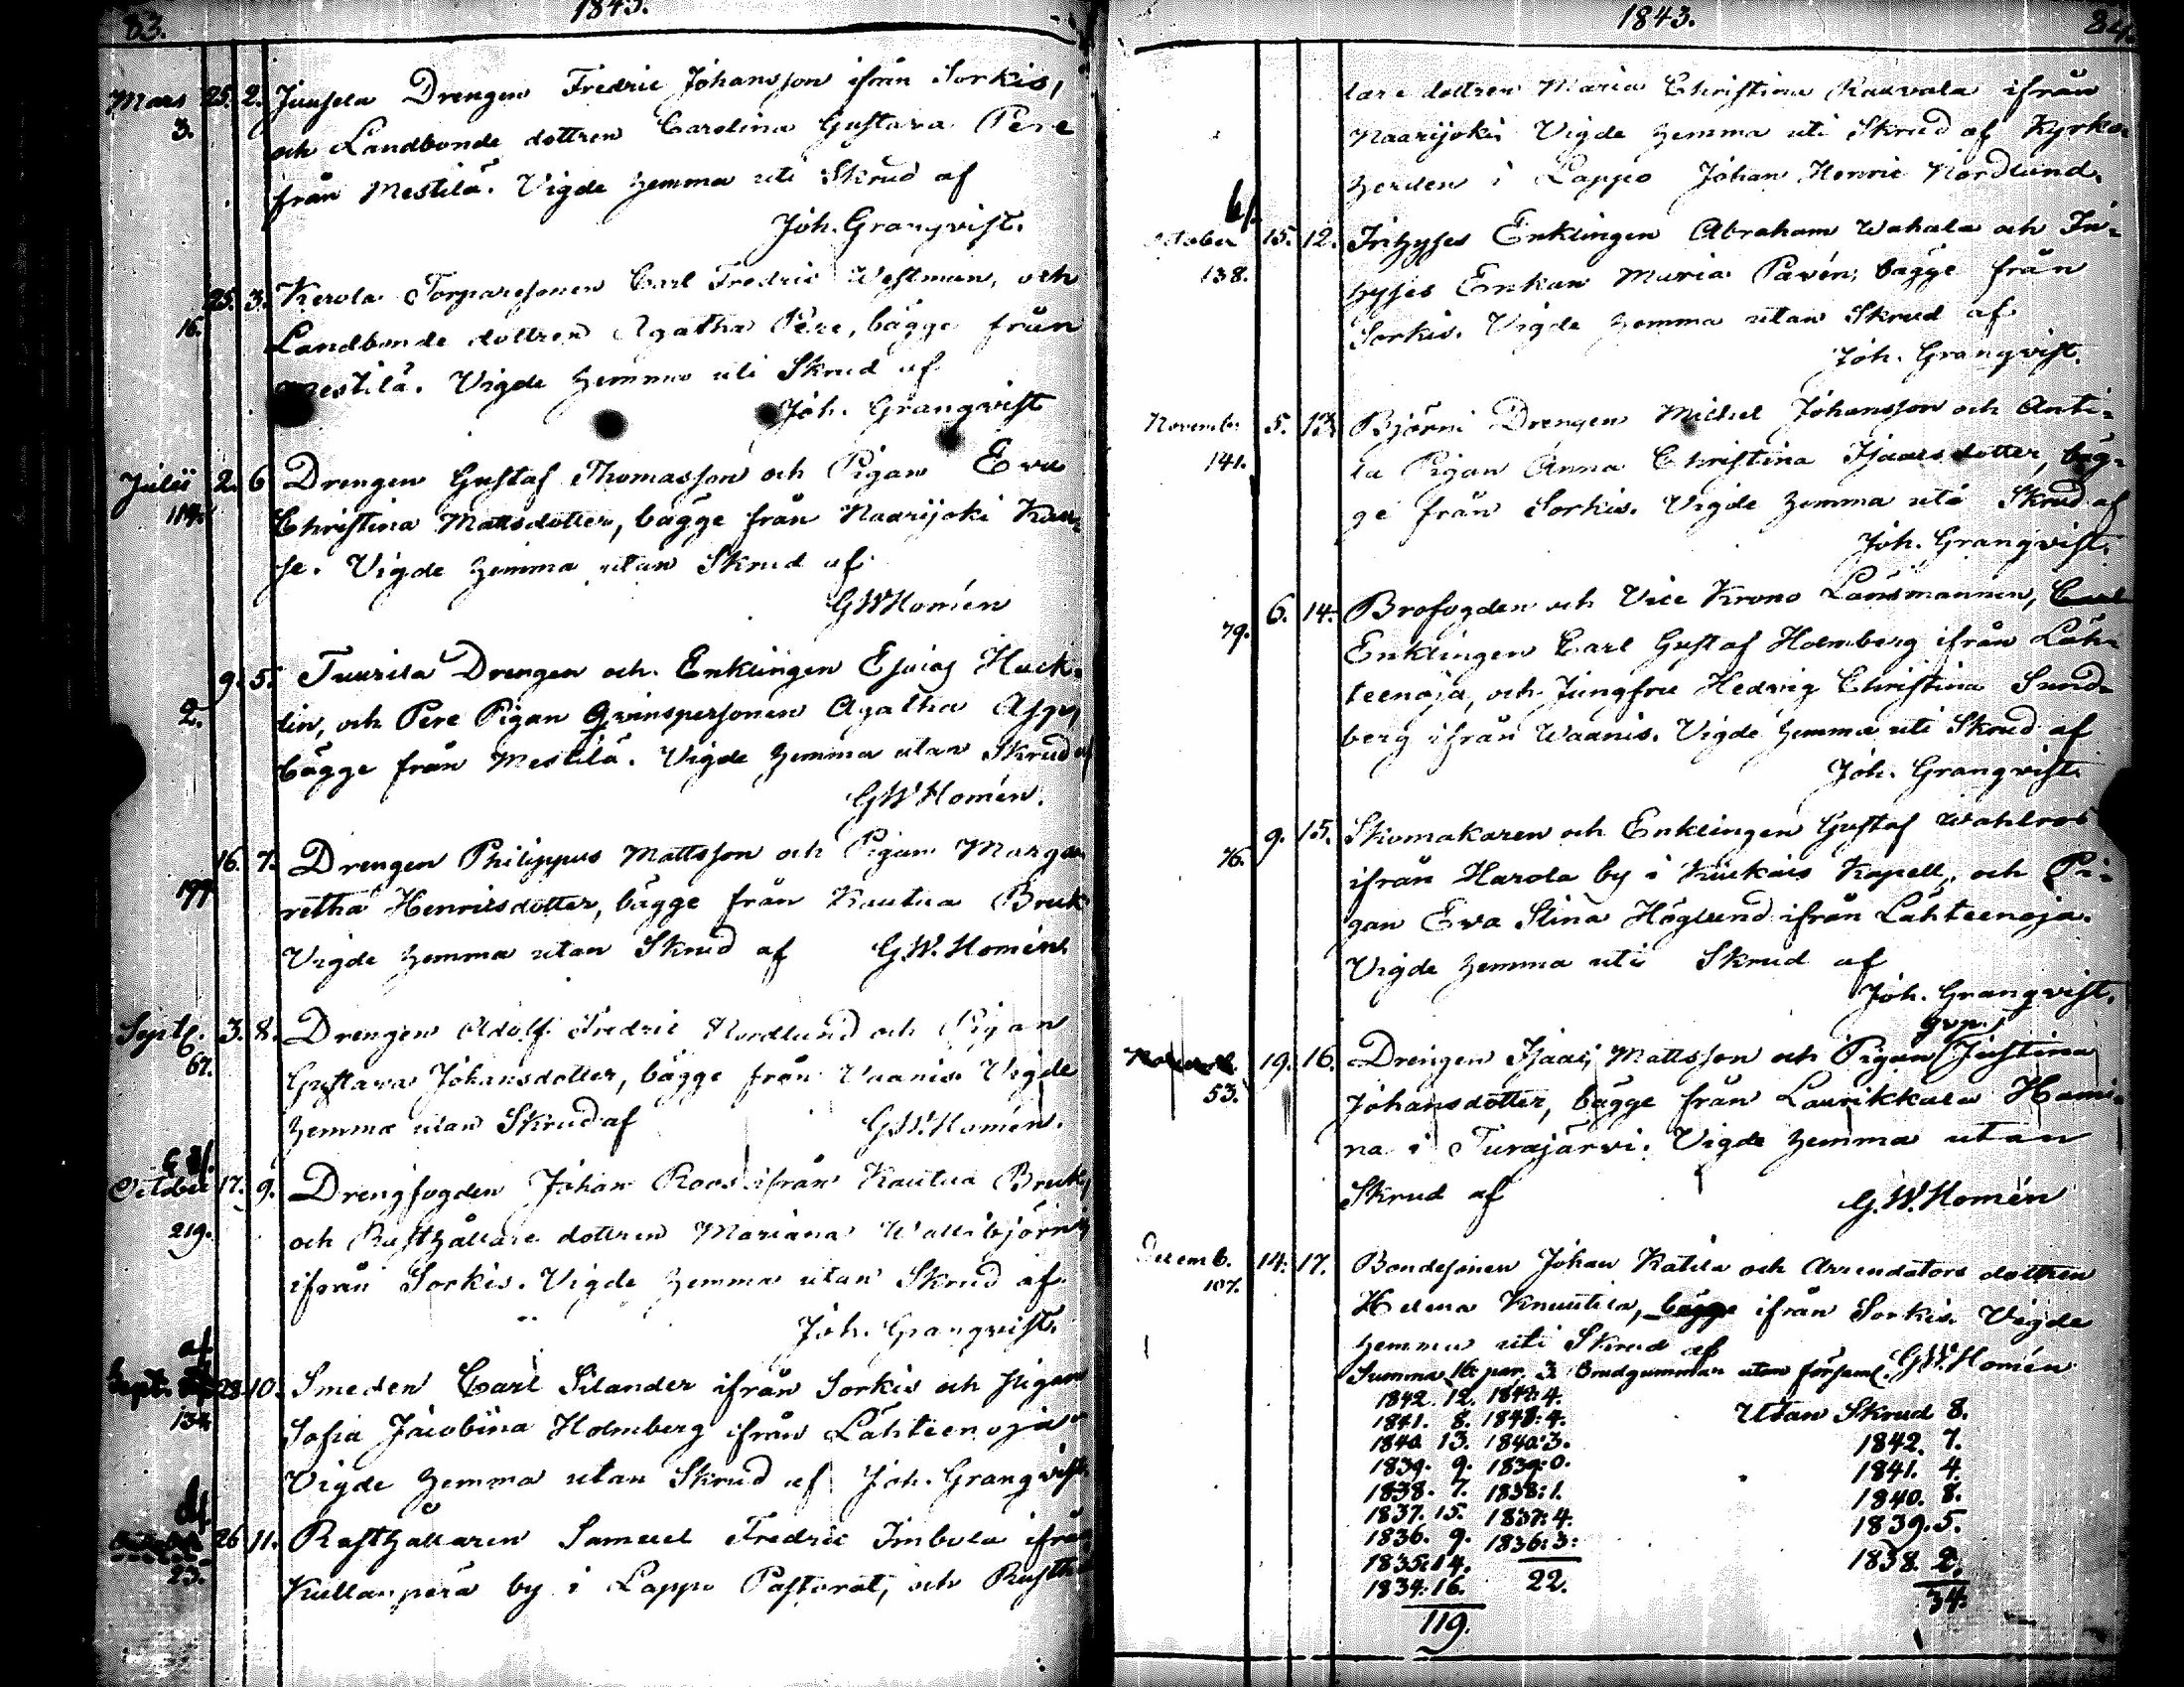 83.
1843.
Mars 25. 2. Juusela Drengen Fredric Johansson ifrån Sorkis,
3. och Landbonde dottren Carolina Gustava Pere
från Mestilä. Vigde hemma uti Skrud af
Joh. Granqvist.
25. 3. Kerola Torparesonen Carl Fredric Westman, och
16. Landbonde dottren Agatha Pere, bägge från
Mestilä. Vigde hemma uti Skrud af
Joh. Granqvist
Julii 2. 6 Drengen Gustaf Thomasson och Pigan Eva
114. Christina Mattsdotter, bägge från Naarijoki
se. Vigde hemma utan Skrud af
GWHomén
9. 5. Tuurila Drengen och Enklingen Esaias Hack-
2. lin, och Pere Pigan Qvinspersonen Agatha
bägge från Mestilä. Vigde hemma utan Skrud af
GWHomén.
16. 7. Drengen Philippus Mattsson och Pigan Marga-
199 retha Henricsdotter, bägge från Kautua Bruk
Vigde hemma utan Skrud af GW.Homén.
Sept. 3. 8. Drengen Adolf Fredric Nordlund och Pigan
67. Gustava Johansdotter, bägge från Vaanis. Vigde
hemma utan Skrud af GW.Homén.
October 17. 9. Drengfogden Johan Roos ifrån Kautua Bruk,
219. och Rusthållare dottren Mariana Wallibjörn
ifrån Sorkis. Vigde hemma utan Skrud af
Joh. Granqvist.
Sept. 28 10. Smeden Carl Silander ifrån Sorkis och Pigan
134 Sofia Jacobina Holmberg ifrån Lähteenoja
Vigde hemma utan Skrud af Joh. Granqvist
26 11. Rusthållaren Samuel Fredric Imbola ifrån
23. Kullanperä by i Lappo Pastorat, och Rusthål
1843.
84.
lare dottren Maria Christina Rauvala ifrån
Naarijoki Vigde hemma uti Skrud af Kyrko-
herden i Lappo Johan Henric Nordlund.
October 15. 12. Inhyses Enklingen Abraham Wahala och In-
138. hyses Enkan Maria Pavén, bägge från
Sorkis. Vigde hemma utan Skrud af
Joh. Granqvist.
November 5. 13 Björni Drengen Michel Johansson och Anti-
141. la Pigan Anna Christina Isaacsdotter, bäg-
ge från Sorkis. Vigde hemma uti Skrud af
Joh. Granqvist.
6. 14. Brofogden och Vice Krono Länsmannen, Carl
79. Enklingen Carl Gustaf Holmberg ifrån Läh-
teenoja, och Jungfru Hedvig Christina Sund-
berg ifrån Waanis. Vigde hemma uti Skrud af
Joh. Granqvist.
9. 15. Skomakaren och Enklingen Gustaf Wahlros
76. ifrån Harola by i Kiukais Kapell, och Pi-
gan Eva Stina Höglund ifrån Lähteenoja.
Vigde hemma uti Skrud af
Joh. Granqvist.
qvp.
19. 16. Drengen Isaac Mattsson och Pigan Justina
53. Johansdotter, bägge från Laurikkala Hami-
na i Turajärvi. Vigde hemma utan
Skrud af G.W.Homén
Decemb. 14. 17. Bondesonen Johan Katila och Arrendators dottren
107. Helena Knuutila, bägge ifrån Sorkis. Vigde
hemma uti Skrud af
Summa 16 par. 3 Brudgummar utom församl. GW.Homén
1842. 12. 1842: 4.
1841. 8. 1841: 4. Utan Skrud 8.
1840 13. 1840: 3. 1842. 7.
1839. 9. 1839: 0. 1841. 4.
1838. 7. 1838: 1. 1840. 8.
1837. 15. 1837: 4. 1839. 5.
1836. 9. 1836: 3: 1838. 2.
1835: 14. 22. 34.
1834: 16.
119.